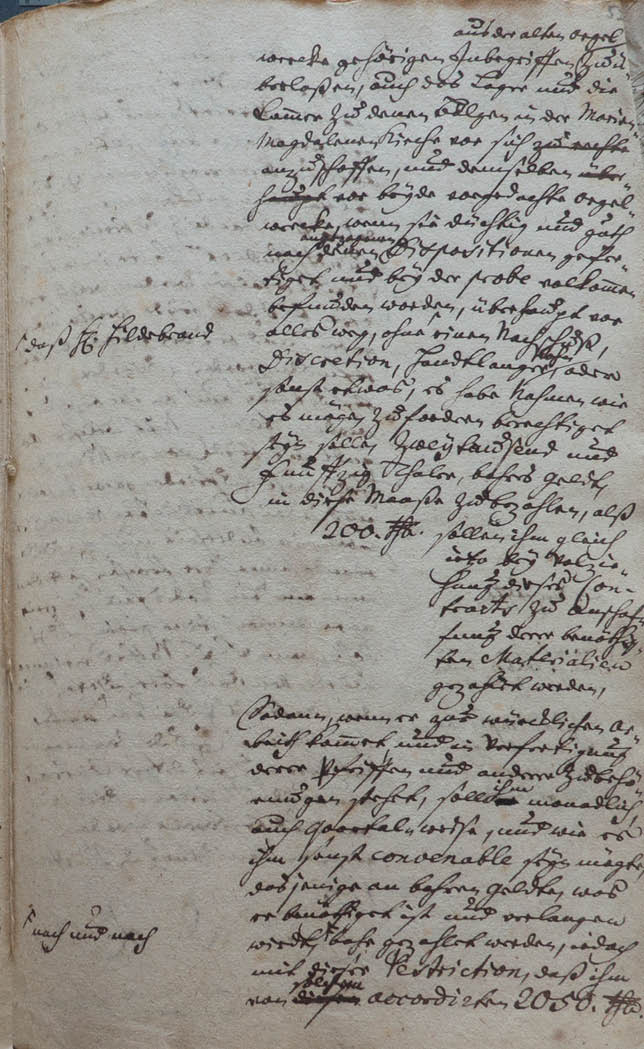 aus der alten orgel
wercke gehörigen Inbegriffen Zu ü-
berlaßen, auch das Lager und die
Cammer Zu denen Bälgen in der Marien
Magdalenen Kirche vor sich
anzuschaffen, und demselben über
haupt vor beyde vorgedachte orgel-
wercke, wenn sie düchtig und guth
nach denen Dispositionen gefer-
tiget und bey der probe vollkommen
befunden worden, überhaupt vor
alles weg, ohne einen Nachschuß,
daß H. Hildebrand
Discretion, Handtlanger, oder
sonst etwas, es habe Nahmen wie
es mögen Zu fordern berechtiget
seyn solle, Zweytausend und
Funffzig Thaler, bahres geldt,
in dieser Maaße Zu bezahlen, alß
200. Thl. sollen ihm gleich
ietzo bey volzie-
hung dieses Con-
tracts Zu Anschaf-
fung derer benöthig-
ten Materialien
gezahlet werden,
Sodann, wenn er zur würcklichen Ar-
beit kommet und in Verfertigung
derer Pfeiffen und anderer Zubehö-
rungen stehet, soll ihm monatlich,
auch Quartaln weise, und wie es
ihm sonst convenable seyn mögte,
dasjenige an bahren geldte, was
er benöthiget ist und verlangen
nach und nach
wirdt, bahr gezahlet werden, iedoch
mit dieser Restriction, daß ihm
solchen
von diesen accordirten 2050. Thl.